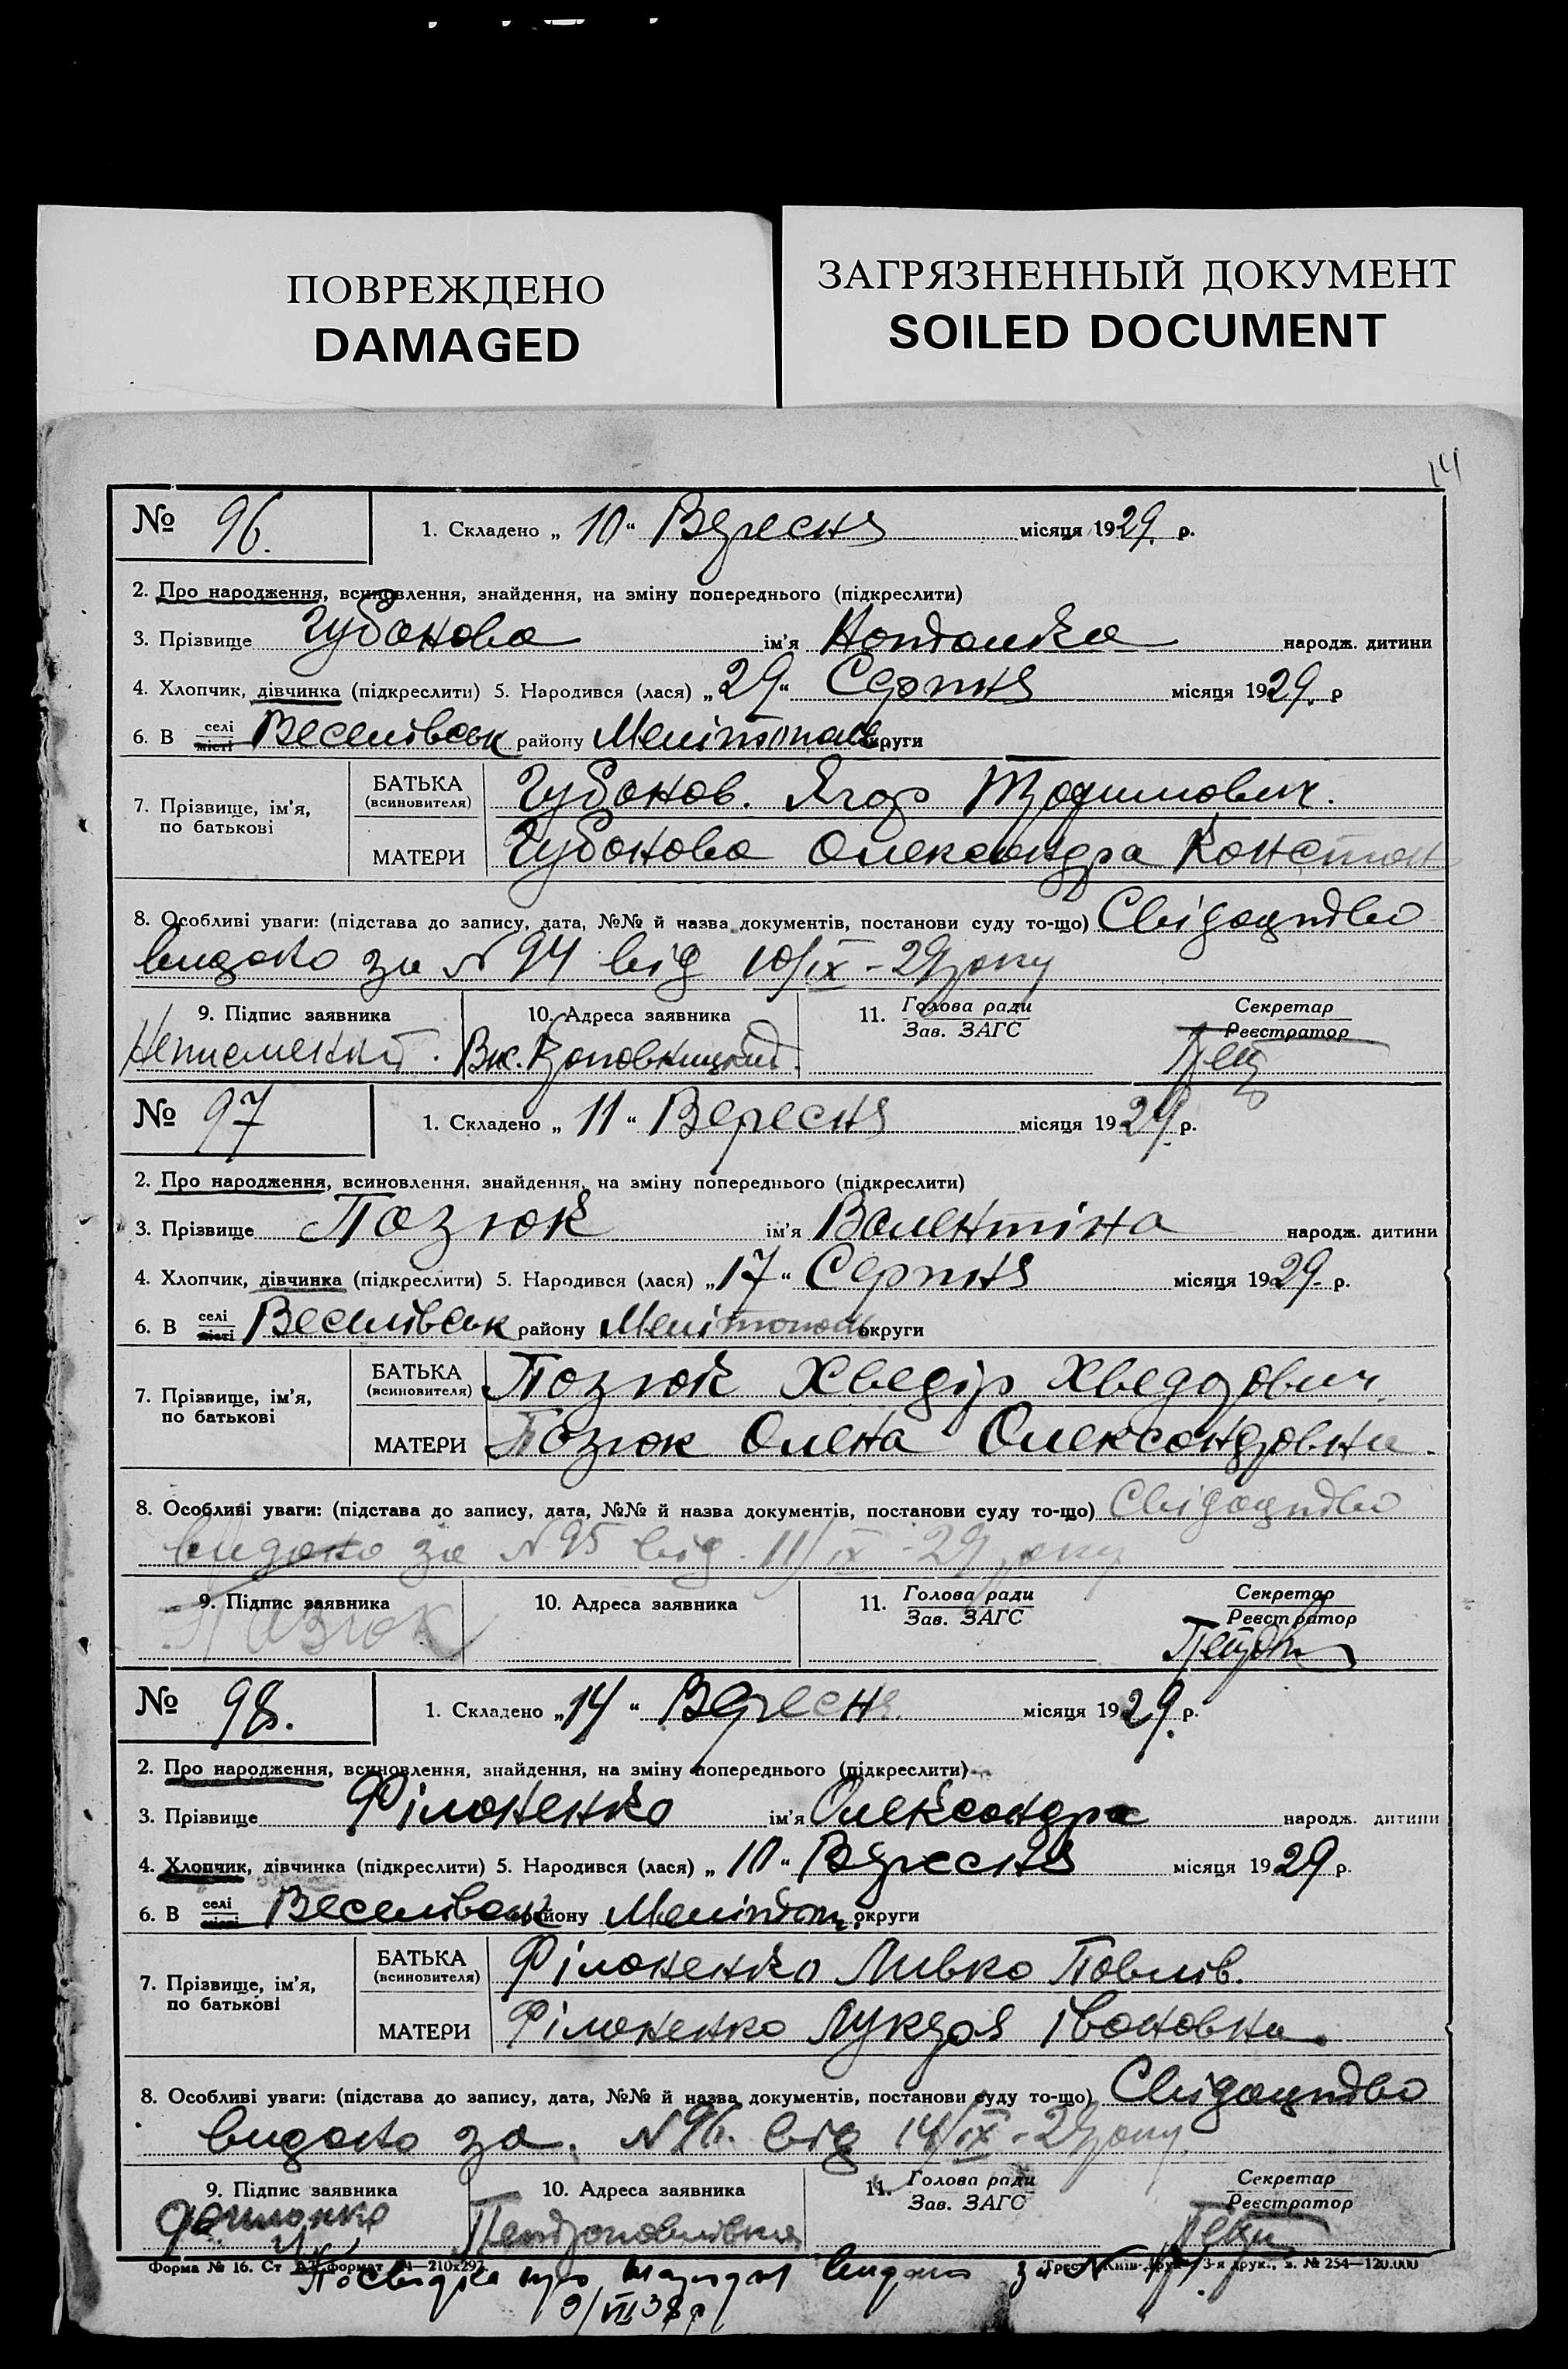 ПОВРЕЖДЕНО
DAMAGED
ЗАГРЯЗНЕННЫЙ ДОКУМЕНТ
SOILED DOCUMENT
14
№ 96. 1. Складено „ 10 “ Вересня місяця 1929. р.
2. Про народження, всиновлення, знайдення, на зміну попереднього (підкреслити)
3. Прізвище Губанова ім'я народж. дитини
4. Хлопчик, дівчинка (підкреслити) 5. Народився (лася) „ 29 “ Серпня місяця 1929. р
6. В селі місті Веселівськ району Мелітополь округи
7. Прізвище, ім'я, по батькові
БАТЬКА (всиновителя) Губанов. Ягор
МАТЕРИ Губанова Олександра Констан
8. Особливі уваги: (підстава до запису, дата, №№ й назва документів, постанови суду то-що) Свідоцтво
видано за N 94 від 10/IX - 29 року
9. Підпис заявника 10. Адреса заявника 11. Голова ради Зав. ЗАГС Секретар Реєстратор
Неписменний.
№ 97 1. Складено „ 11 “ Вересня місяця 1929. р.
2. Про народження, всиновлення, знайдення, на зміну попереднього (підкреслити)
3. Прізвище Позюк ім'я Валентіна народж. дитини
4. Хлопчик, дівчинка (підкреслити) 5. Народився (лася) „ 17 “ Серпня місяця 1929. р.
6. В селі місті Веселівськ району Мелітополь округи
7. Прізвище, ім'я, по батькові
БАТЬКА (всиновителя) Позюк Хведір Хведорович.
МАТЕРИ Позюк Олена Олександровна.
8. Особливі уваги: (підстава до запису, дата, №№ й назва документів, постанови суду то-що) Свідоцтво
видано за N 95 від 11/IX - 29 року
9. Підпис заявника 10. Адреса заявника 11. Голова ради Зав. ЗАГС Секретар Реєстратор
Позюк
№ 98. 1. Складено „ 14 “ Вересня місяця 1929. р.
2. Про народження, всиновлення, знайдення, на зміну попереднього (підкреслити)
3. Прізвище Філоненко ім'я Олександра народж. дитини
4. Хлопчик, дівчинка (підкреслити) 5. Народився (лася) „ 10 “ Вересня місяця 1929 р.
6. В селі місті Веселівськ району Мелітоп. округи
7. Прізвище, ім'я, по батькові
БАТЬКА (всиновителя) Філоненко Левко Павлів.
МАТЕРИ Філоненко Лукеря Івановна
8. Особливі уваги: (підстава до запису, дата, №№ й назва документів, постанови суду то-що) Свідоцтво
видано за. N 96. від 14/IX - 29 року.
9. Підпис заявника 10. Адреса заявника 11. Голова ради Зав. ЗАГС Секретар Реєстратор
Форма № 16. Ст формат —210x297 3-я друк., з. № 254—120.000
Посвідка про видано за N
9/VII 38 р